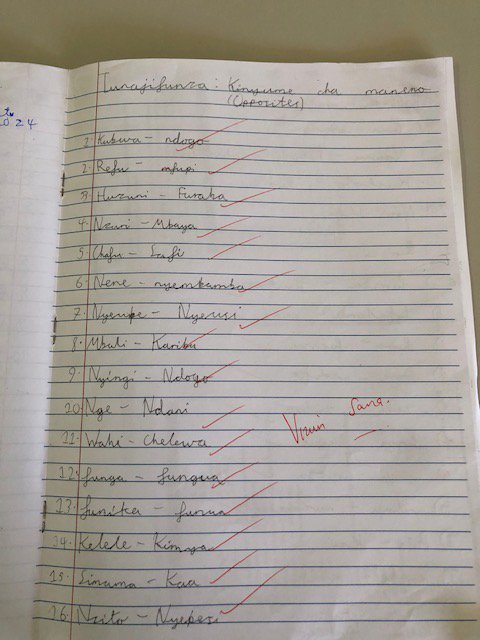 Tunajifunza: Kinyume cha maneno
(Opposites)
024
1. Kubwa - ndogo
2. Refu - mfupi
3. Huzuni - Furaha
4. Nzuri - Mbaya
5. Chafu - Safi
6. Nene - nyembamba
7. Nyeupe - Nyeusi
8. Mbali - Karibu
9. Nyingi - Ndogo
10. Nge - Ndani
11. Wahi - Chelewa
12. funga - fungua
13. funika - funua
14. Kelele - Kimya
15. Simama - Kaa
16. Nzito - Nyepesi
Vizuri Sana.